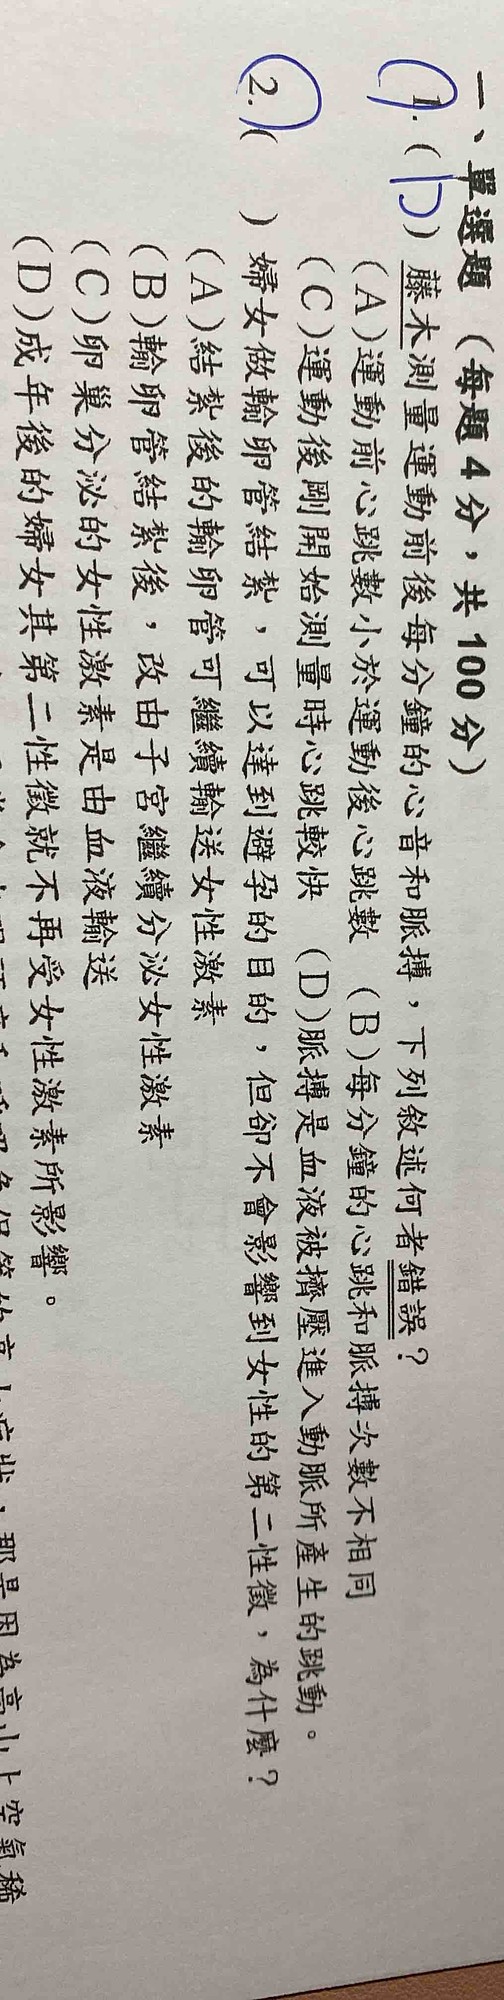 一、單選題（每題 4 分，共 100 分）
1. (D) 藤木測量運動前後每分鐘的心音和脈搏，下列敘述何者錯誤？
(A)運動前心跳數小於運動後心跳數 (B)每分鐘的心跳和脈搏次數不相同
(C)運動後剛開始測量時心跳較快 (D)脈搏是血液被擠壓進入動脈所產生的跳動。
2. ( ) 婦女做輸卵管結紮，可以達到避孕的目的，但卻不會影響到女性的第二性徵，為什麼？
(A)結紮後的輸卵管可繼續輸送女性激素
(B)輸卵管結紮後，改由子宮繼續分泌女性激素
(C)卵巢分泌的女性激素是由血液輸送
(D)成年後的婦女其第二性徵就不再受女性激素所影響。
那是因為高山上空氣稀